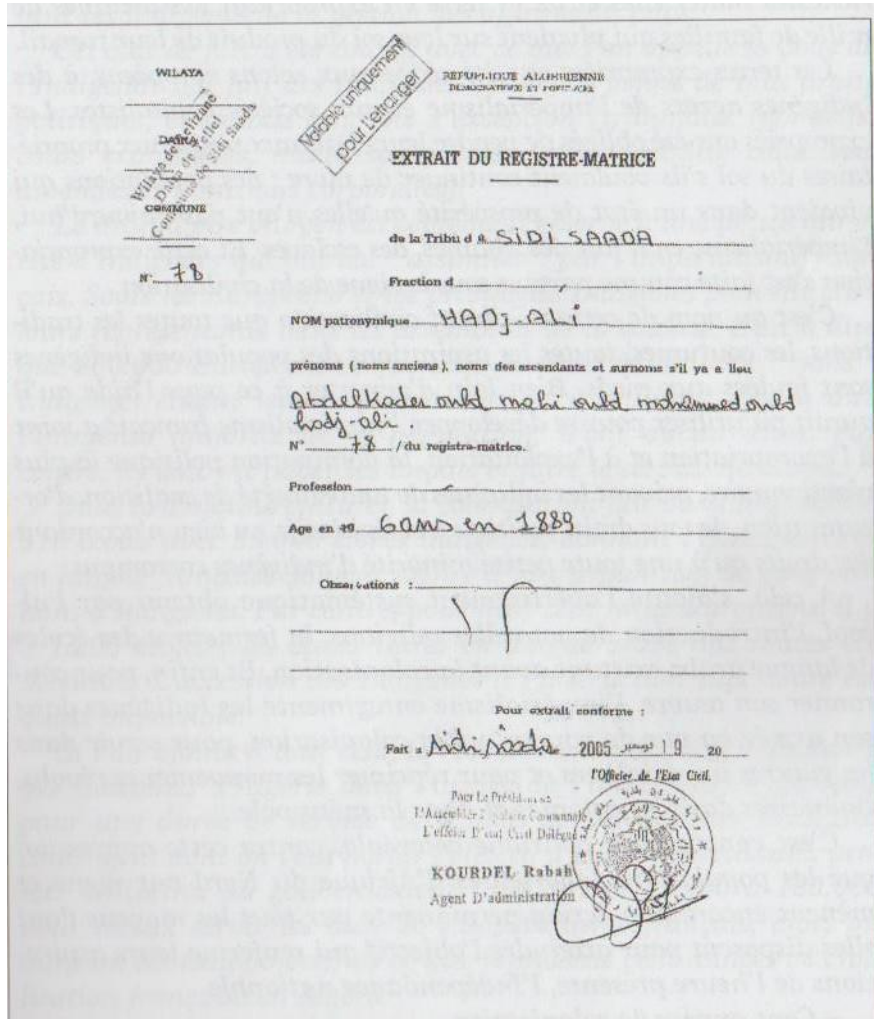 WILAYA
DAIRA
Wilaya de Relizane
Daira de Zellel
Commune de Sidi Saada
COMMUNE
N° 78
Valable uniquement
pour L'étranger
REPUBLIQUE ALGERIENNE
DEMOCRATIQUE ET POPULAIRE
EXTRAIT DU REGISTRE-MATRICE
de la Tribu d e SIDI SAADA
Fraction d
NOM patronymique HADJ-ALI
prénoms (noms anciens), noms des ascendants et surnoms s'il y a lieu
Abdelkader ould mahi ould mohammed ould
hadj ali
N° 78 / du registre-matrice
Profession
Age en 19 6 ans en 1889
Observations :
Pour extrait conforme :
Fait a Sidi Saada le 2005 19 20
l'Officier de l'Etat Civil,
Pour Le Président de
L'Assemblée Populaire Communale
L'officier D'etat Civil Délégué
KOURDEL Rabah
Agent D'administration